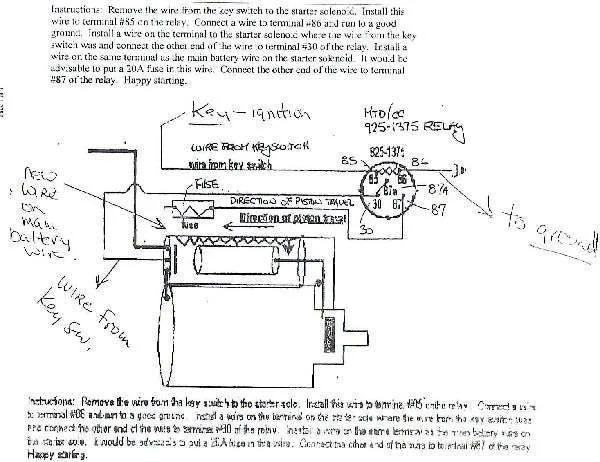 Instructions: Remove the wire from the key switch to the starter solenoid. Install this
wire to terminal #85 on the relay. Connect a wire to terminal #86 and run to a good
ground. Install a wire on the terminal to the starter solenoid where the wire from the key
switch was and connect the other end of the wire to terminal #30 of the relay. Install a
wire on the same terminal as the main battery wire on the starter solenoid. It would be
advisable to put a 20A fuse in this wire. Connect the other end of the wire to terminal
#87 of the relay. Happy starting.
Key - ignition
MTD/CC
925-1375 RELAY
WIRE FROM KEYSWITCH
wire from key switch
925-1375
85
86
85
86
87a
87A
30
87
87
30
to ground
NEW
WIRE
on
main
battery
wire
FUSE
fuse
DIRECTION OF PISTON TRAVEL
Direction of piston travel
WIRE From
Key Sw.
Instructions: Remove the wire from the key switch to the starter sole. Install this wire to termina #85 on the relay. Connect a wire
to terminal #86 and run to a good ground. Install a wire on the terminal on the starter sole where the wire from the key switch was
and connect the other end of the wire to terminal #30 of the relay. Install a wire on the same terminal as the main battery wire on
the starter sole. It would be advisable to put a 20A fuse in this wire. Connect the other end of the wire to terminal #87 of the relay
Happy starting.